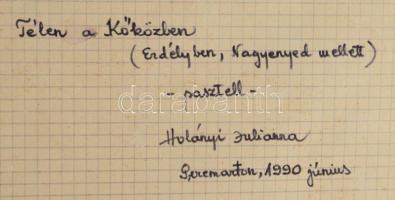 Télen a Kőközben
(Erdélyben, Nagyenyed mellett)
- pasztell -
darabanth
Holányi Julianna
Peremarton, 1990 június